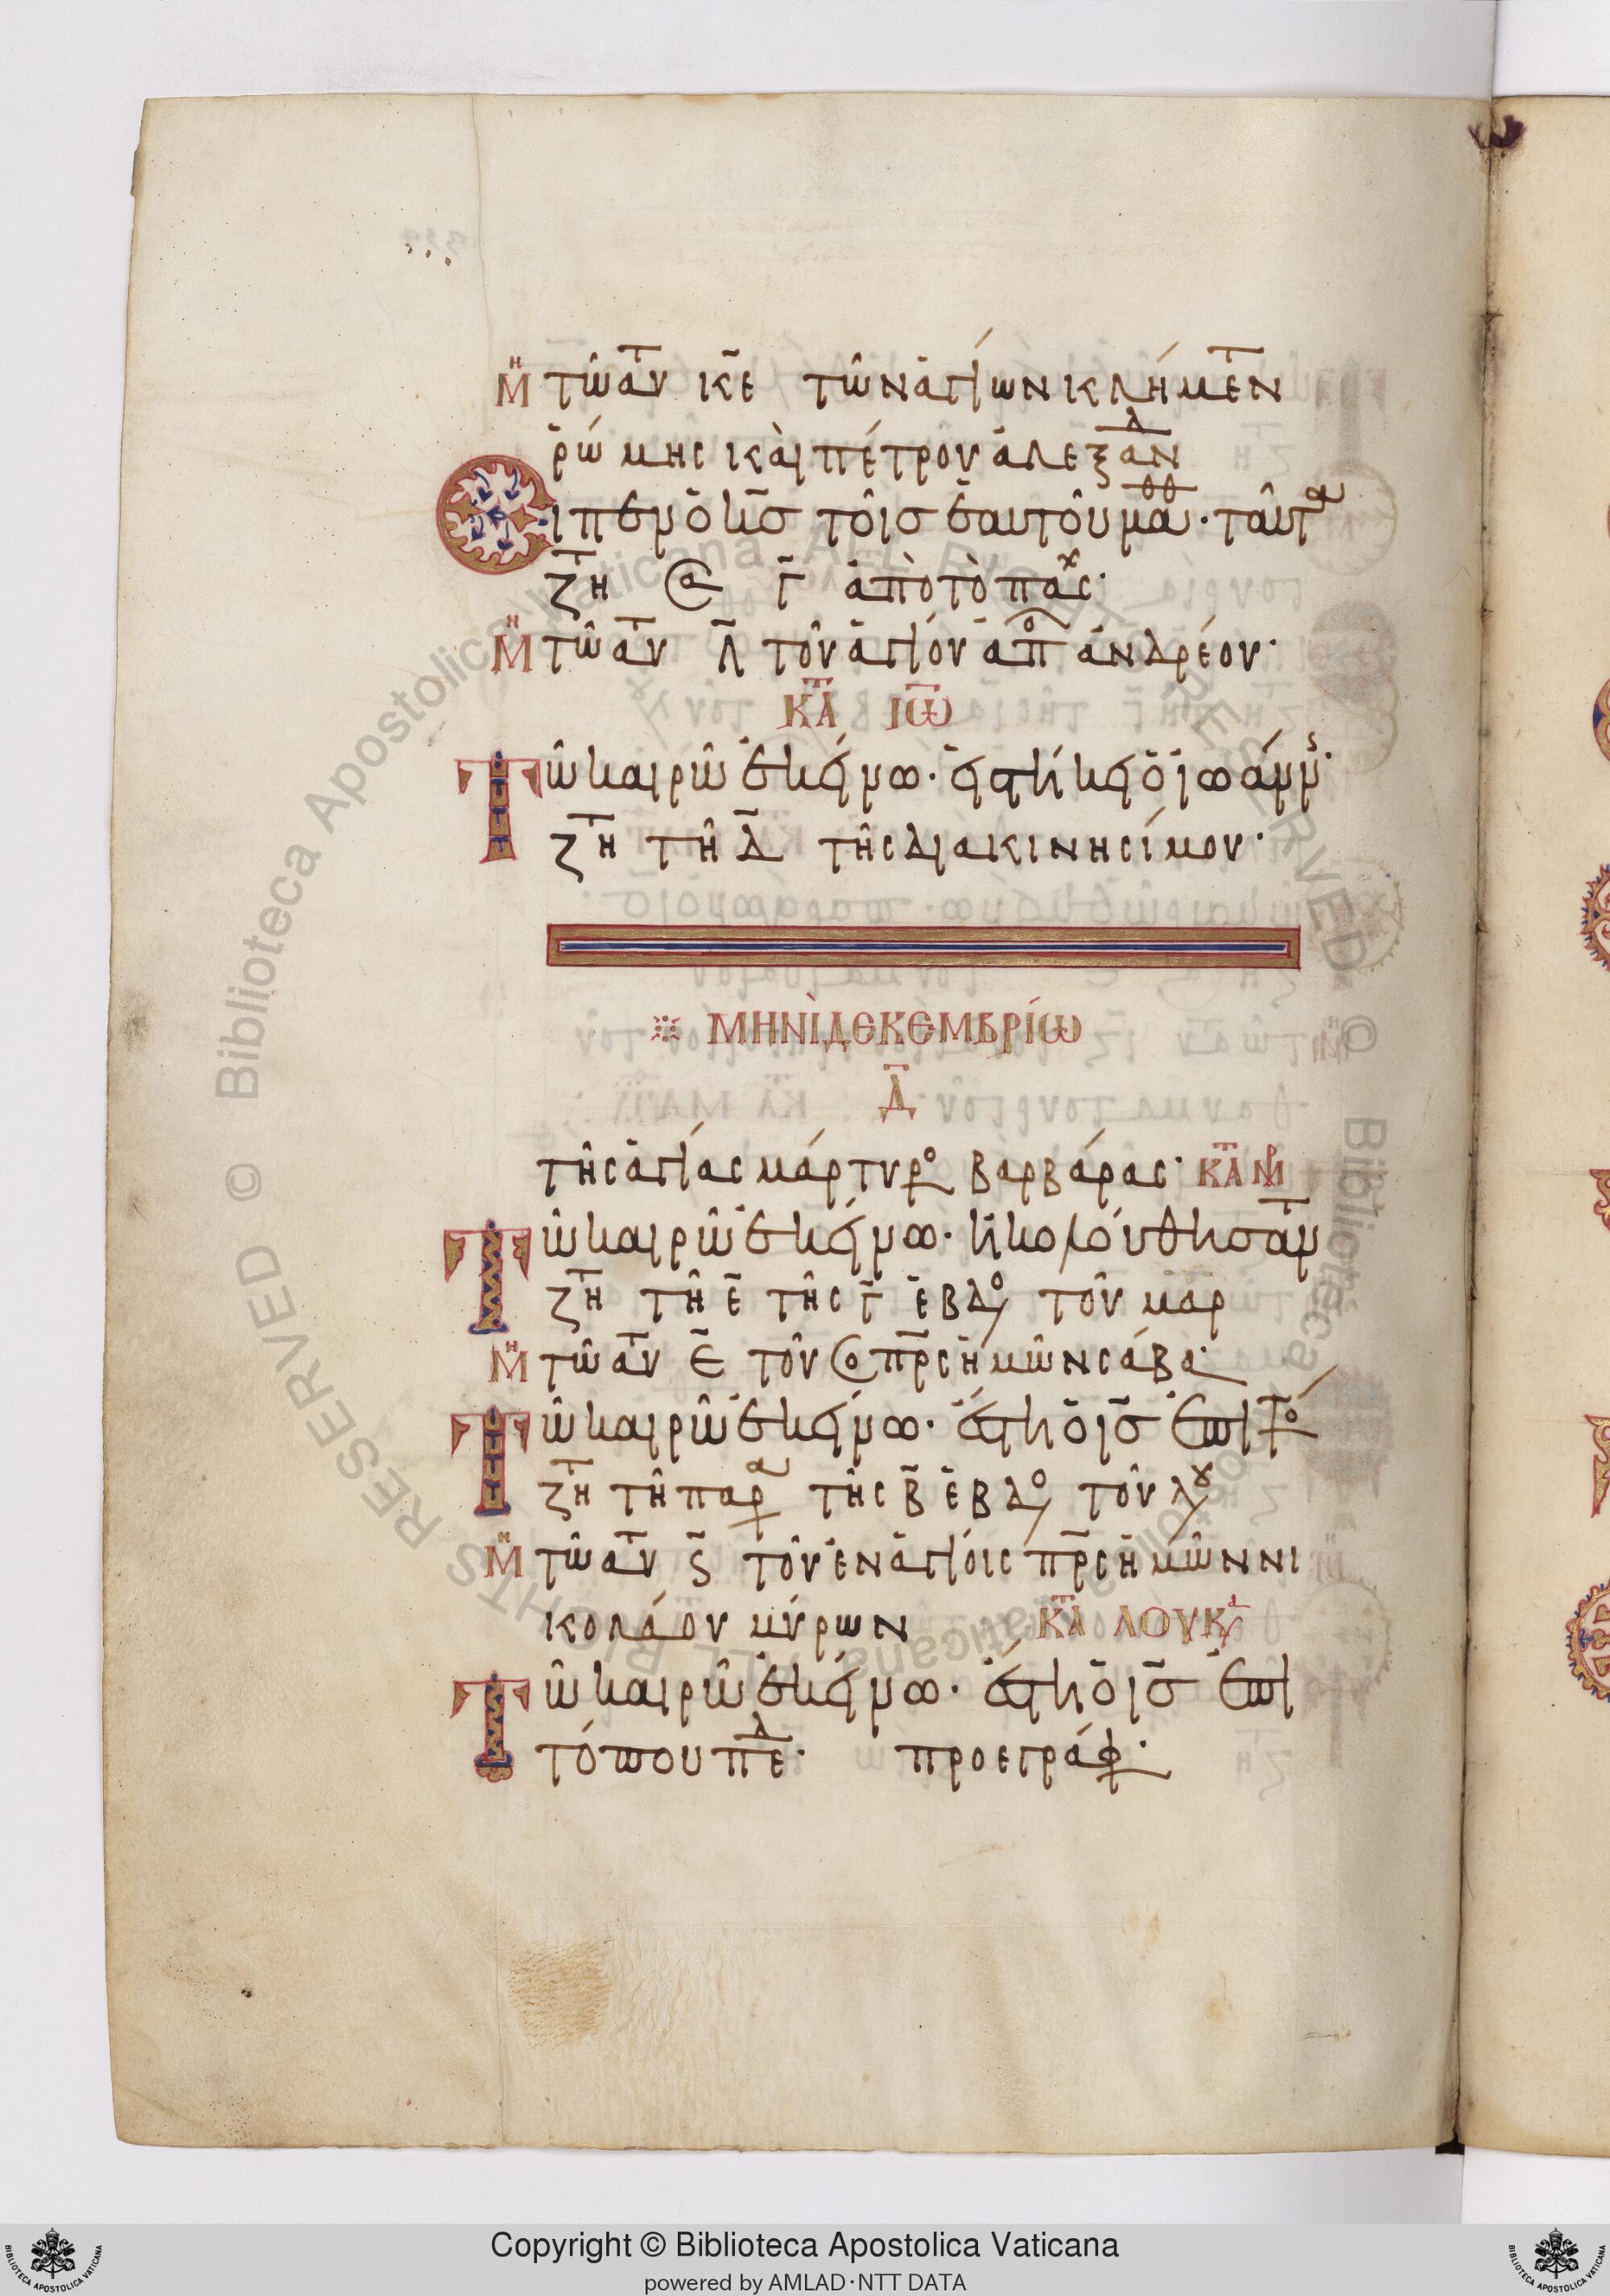 Μη τῶ αυτ κε τῶν ἁγίων κλήμεντ
ῥώμης καὶ πέτρου ἀλεξανδ
Οιπεν ὁ κς τοῖς ἑαυτοῦ μαθθ· ταῦτα
ζητη ϛα γ ἀπὸ τὸ πασχ·
Μη τῶ αυτ λ τοῦ ἁγίου ἀπο ἀνδρέου·
κατ ιω
Τῶ καιρῶ ἐκείνω· εἱστήκει ὁ ἰωάνν·
ζητη τῆ δ τῆς διακινησίμου·
ΜΗΝῚ ΔΕΚΕΜΒΡΊΩ
Δ
τῆς ἁγίας μάρτυρο βαρβάρας· κατ Μρ
Τῶ καιρῶ ἐκείνω· ἠκολούθησαντ
ζητη τῆ ε τῆς γ ἑβδο τοῦ μαρ
Μη τῶ αυτ ε τοῦ ὁσ πρς ἡμῶν σάβα·
Τῶ καιρῶ ἐκείνω· ἔστη ὁ ις ἐπὶ το
ζητη τῆ παρα τῆς β ἑβδο τοῦ λου
Μη τῶ αυτ ς τοῦ ἐν ἁγίοις πρς ἡμῶν νι
κολάου μύρων κατ λουκ
Τῶ καιρῶ ἐκείνω· ἔστη ὁ ις ἐπὶ
τόπου πεδ· προεγράφ·
Copyright © Biblioteca Apostolica Vaticana
powered by AMLAD·NTT DATA
© Biblioteca Apostolica Vaticana ALL RIGHTS RESERVED
© Biblioteca Apostolica Vaticana ALL RIGHTS RESERVED